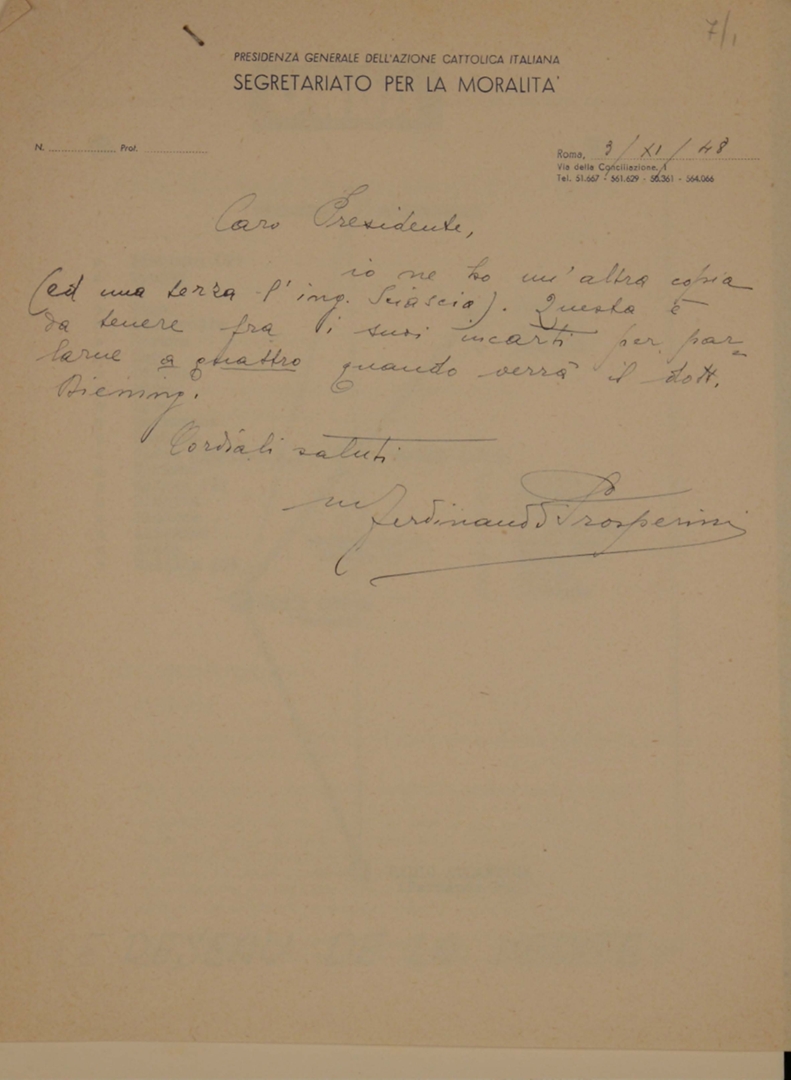 7/1
PRESIDENZA GENERALE DELL'AZIONE CATTOLICA ITALIANA
SEGRETARIATO PER LA MORALITA'
N. .................... Prot. ....................
Roma, 3/XI/48
Via della Conciliazione, 1
Tel. 51.667 - 561.629 - 50.361 - 564.066
Caro Presidente,
io ne ho un'altra copia
(ed una terza l'ing. Sciascia). Questa è
da tenere fra i suoi incarti per par=
larne a quattro quando verrà il dott.
Cordiali saluti
Ferdinando Prosperini